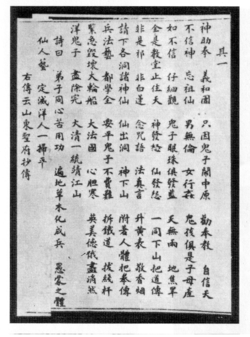 其一
神助拳 義和團 只因鬼子鬧中原 勸奉教 自信天
不信神 忘祖仙 男無倫 女行奸 鬼孩俱是子母產
如不信 仔細觀 鬼子眼珠俱發藍 天無雨 地焦旱
全是教堂止住天 神發怒 仙發怨 一同下山把道傳
非是邪 非白蓮 念咒語 法真言 升黃表 敬香烟
請下各洞諸神仙 仙出洞 神下山 附著人體把拳傳
兵法藝 都學全 要平鬼子不費難 拆鐵道 拔線杆
緊急毀壞大輪船 大法國 心胆寒 英美德俄盡消然
洋鬼子 盡除完 大清一統靖江山
詩曰 弟子同心苦用功 遍地草木化成兵 愚蒙之體
仙人藝 定滅洋人一掃平
右傳云山東聖府抄傳